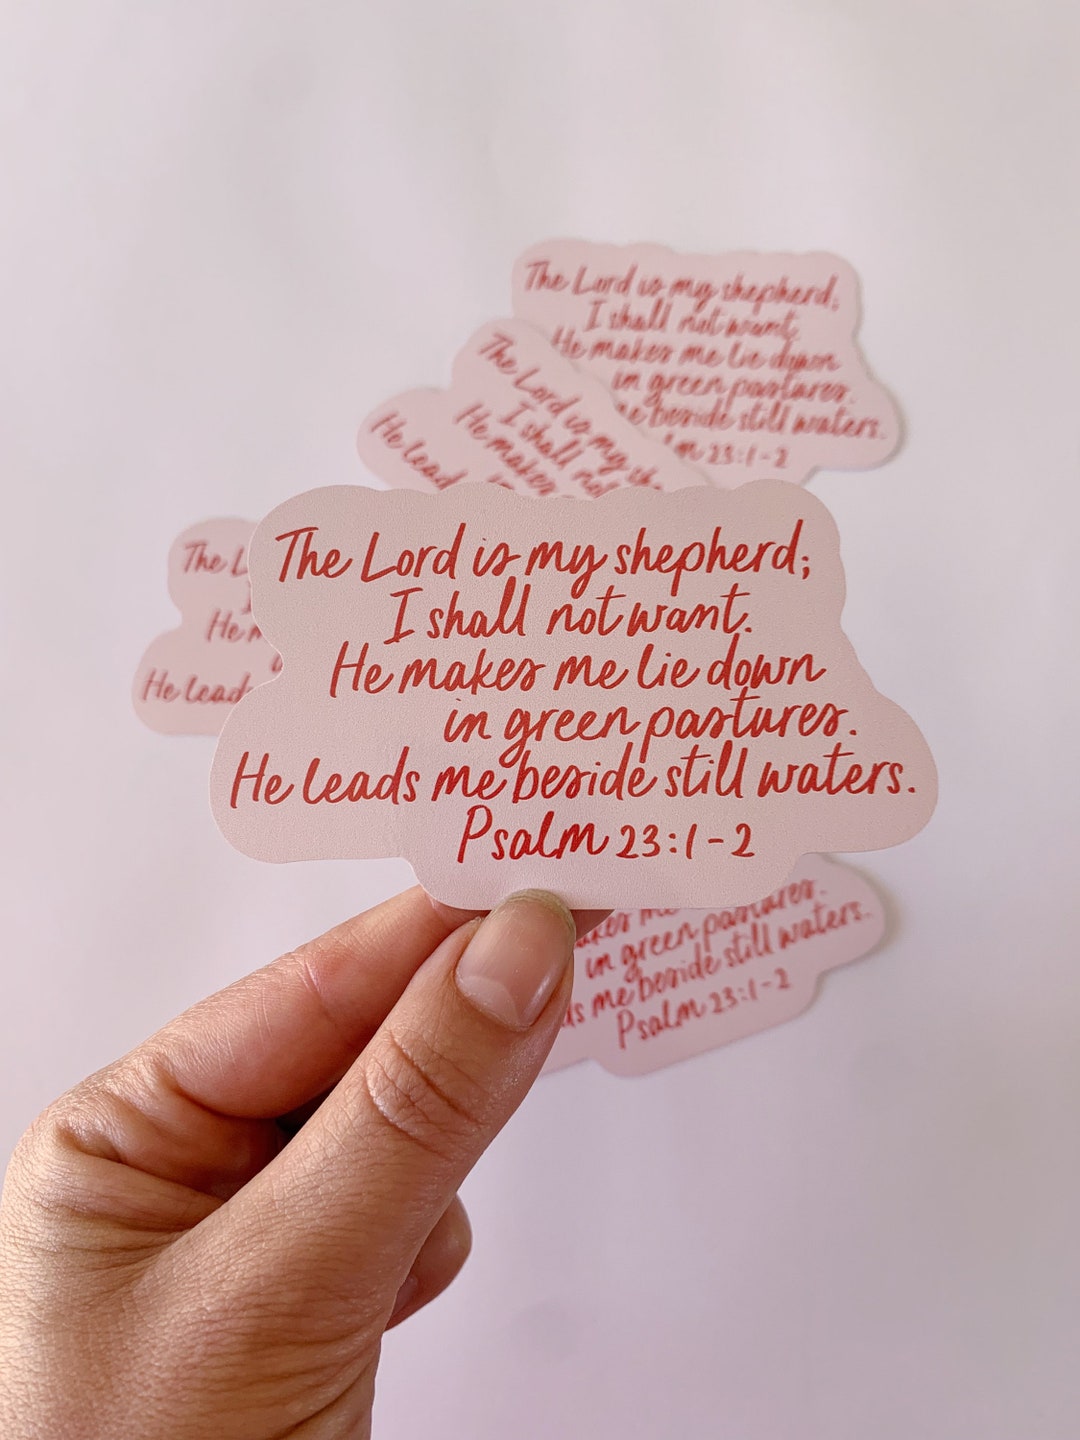 The Lord is my shepherd;
I shall not want.
He makes me lie down
in green pastures.
beside still waters.
23:1-2
The Lord is my
I shall
He makes
He lead
The
He
He leads
The Lord is my shepherd;
I shall not want.
He makes me lie down
in green pastures.
He leads me beside still waters.
Psalm 23:1-2
me
in green pastures.
me beside still waters.
Psalm 23:1-2